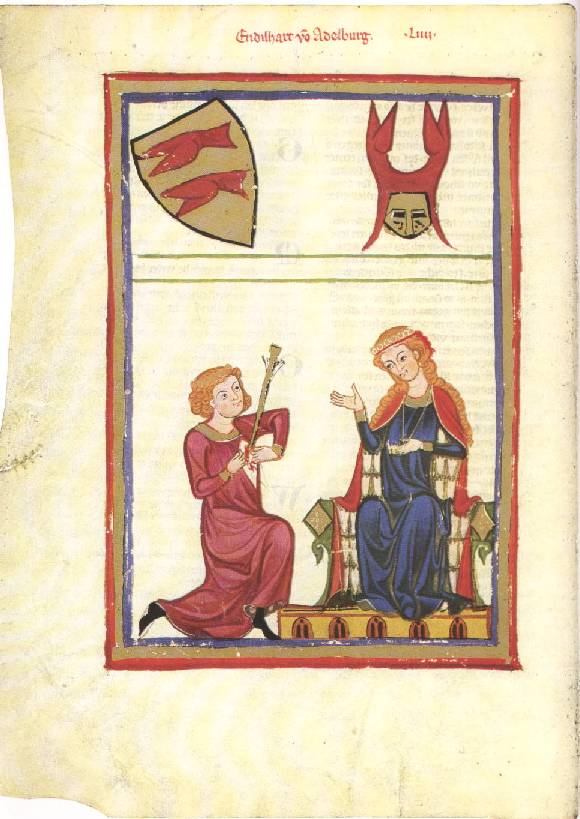 Endilhart võ Adelburg. ·Liiij·